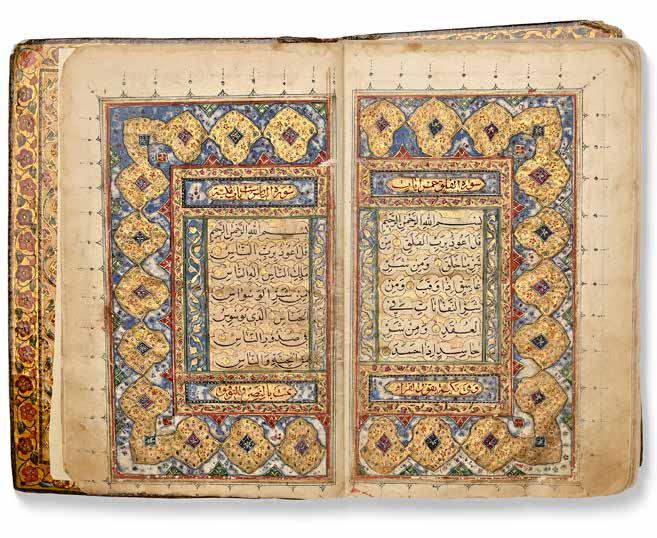 سورة الفلق خمس ايات
بسم الله الرحمن الرحيم
قل اعوذ برب الفلق من
شر ما خلق ومن شر
غاسق اذا وقب ومن
شر النفاثات في
العقد ومن شر
حاسد اذا حسد
سورة الناس
بسم الله الرحمن الرحيم
قل اعوذ برب الناس
ملك الناس اله الناس
من شر الوسواس
الخناس الذي يوسوس
في صدور الناس
من الجنة والناس